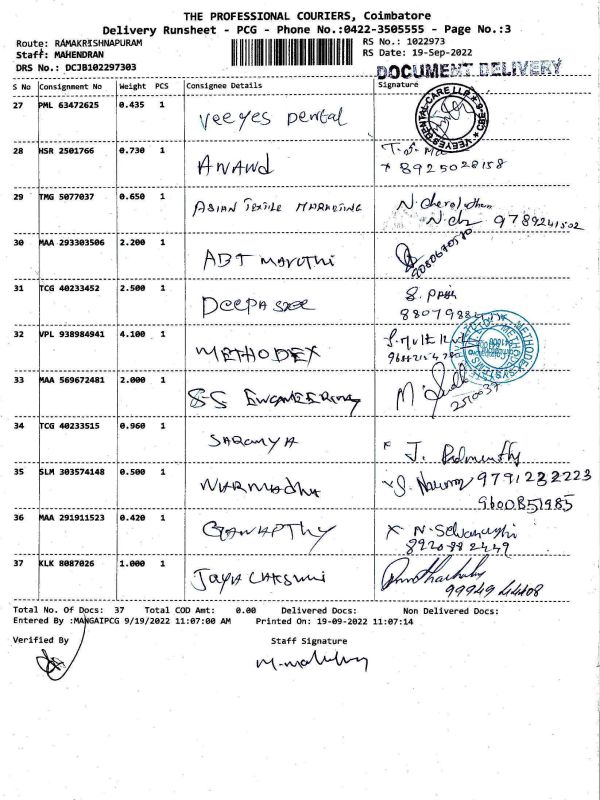 THE PROFESSIONAL COURIERS, Coimbatore
Delivery Runsheet - PCG - Phone No.:0422-3505555 - Page No.:3
Route: RAMAKRISHNAPURAM RS No.: 1022973
Staff: MAHENDRAN RS Date: 19-Sep-2022
DRS No.: DCJB102297303 DOCUMENT DELIVERY
S No Consignment No Weight PCS Consignee Details Signature
27 PML 63472625 0.435 1 Veeyes Dental
28 HSR 2501766 0.730 1 ANAND
8925028158
29 TMG 5077037 0.650 1 ASIAN TEXTILE MARKETING
9789241502
30 MAA 293303506 2.200 1 ABT Maruthi
9080670570
31 TCG 40233452 2.500 1 DEEPA SREE
32 VPL 938984941 4.100 1 METHODEX
33 MAA 569672481 2.000 1 S-S ENGINEERING
2510037
34 TCG 40233515 0.960 1 SARANYA
35 SLM 303574148 0.500 1 NARMADHA 9791232223
9600851985
36 MAA 291911523 0.420 1 GANAPTHY
8920882449
37 KLK 8087026 1.000 1 JAYA LAKSHMI
99949 44408
Total No. Of Docs: 37 Total COD Amt: 0.00 Delivered Docs: Non Delivered Docs:
Entered By :MANGAIPCG 9/19/2022 11:07:00 AM Printed On: 19-09-2022 11:07:14
Verified By Staff Signature